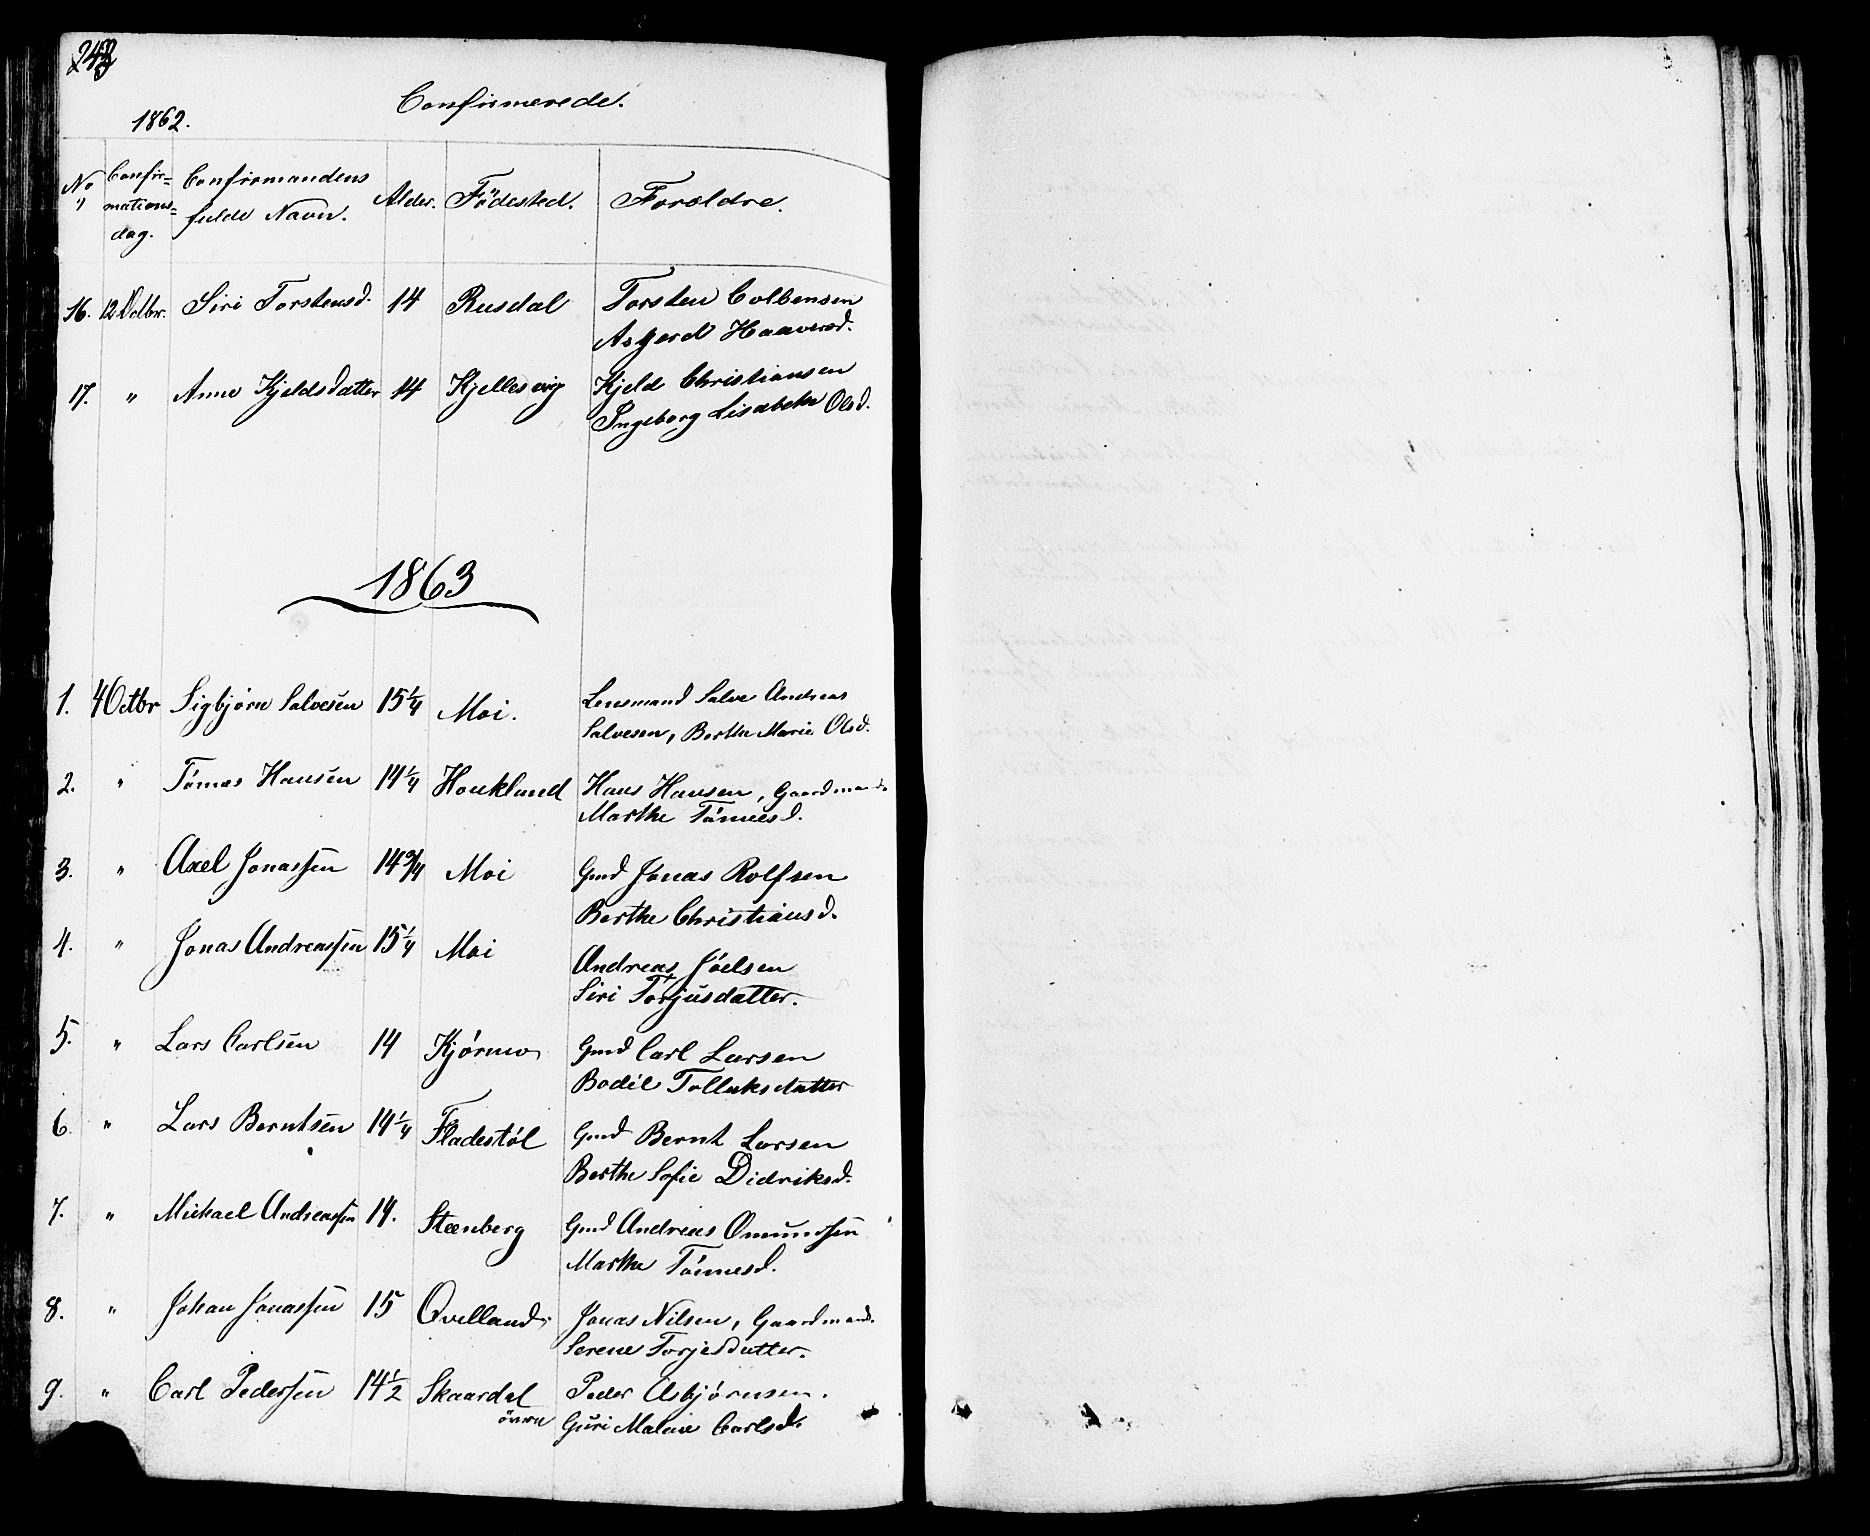 Confirmerede.
1862.
No
Confir=
mations=
dag.
Confirmandens
fulde Navn.
Alder.
Födested.
Forældre.
16. 12 Octbr. Siri Torstensd. 14 Rusdal Torsten Colbensen
Asgerd Haaversd.
17. " Anne Kjeldsdatter 14 Kjellesvig Kjeld Christiansen
Ingeborg Lisabeth Olsd.
1863
1. 4 Octbr Sigbjørn Salvesen 15 1/4 Moi. Lensmand Salve Andreas
Salvesen, Berthe Marie Olsd.
2. " Tönnes Hansen 14 1/4 Houkland Hans Hansen, Gaardmand.
Marthe Tönnesd.
3. " Axel Jonassen 14 3/4 Moi Gmd Jonas Rolfsen
Berthe Christiansd.
4. " Jonas Andreassen 15 1/4 Moi Andreas Joelsen
Siri Torjusdatter.
5. " Lars Carlsen 14 Kjørmo Gmd Carl Larsen
Bodil Tollaksdatter
6. " Lars Berntsen 14 1/4 Fladestøl Gmd Bernt Larsen
Berthe Sofie Didriksd.
7. " Michael Andreassen 14. Steenberg Gmd Andreas Omundsen
Marthe Tönnesd.
8. " Johan Jonassen 15 Qvelland Jonas Nilsen, Gaardmand.
Serene Torjesdatter.
9. " Carl Pedersen 14 1/2 Skaardal Peder Asbjørnsen.
övre Guri Malene Carlsd.